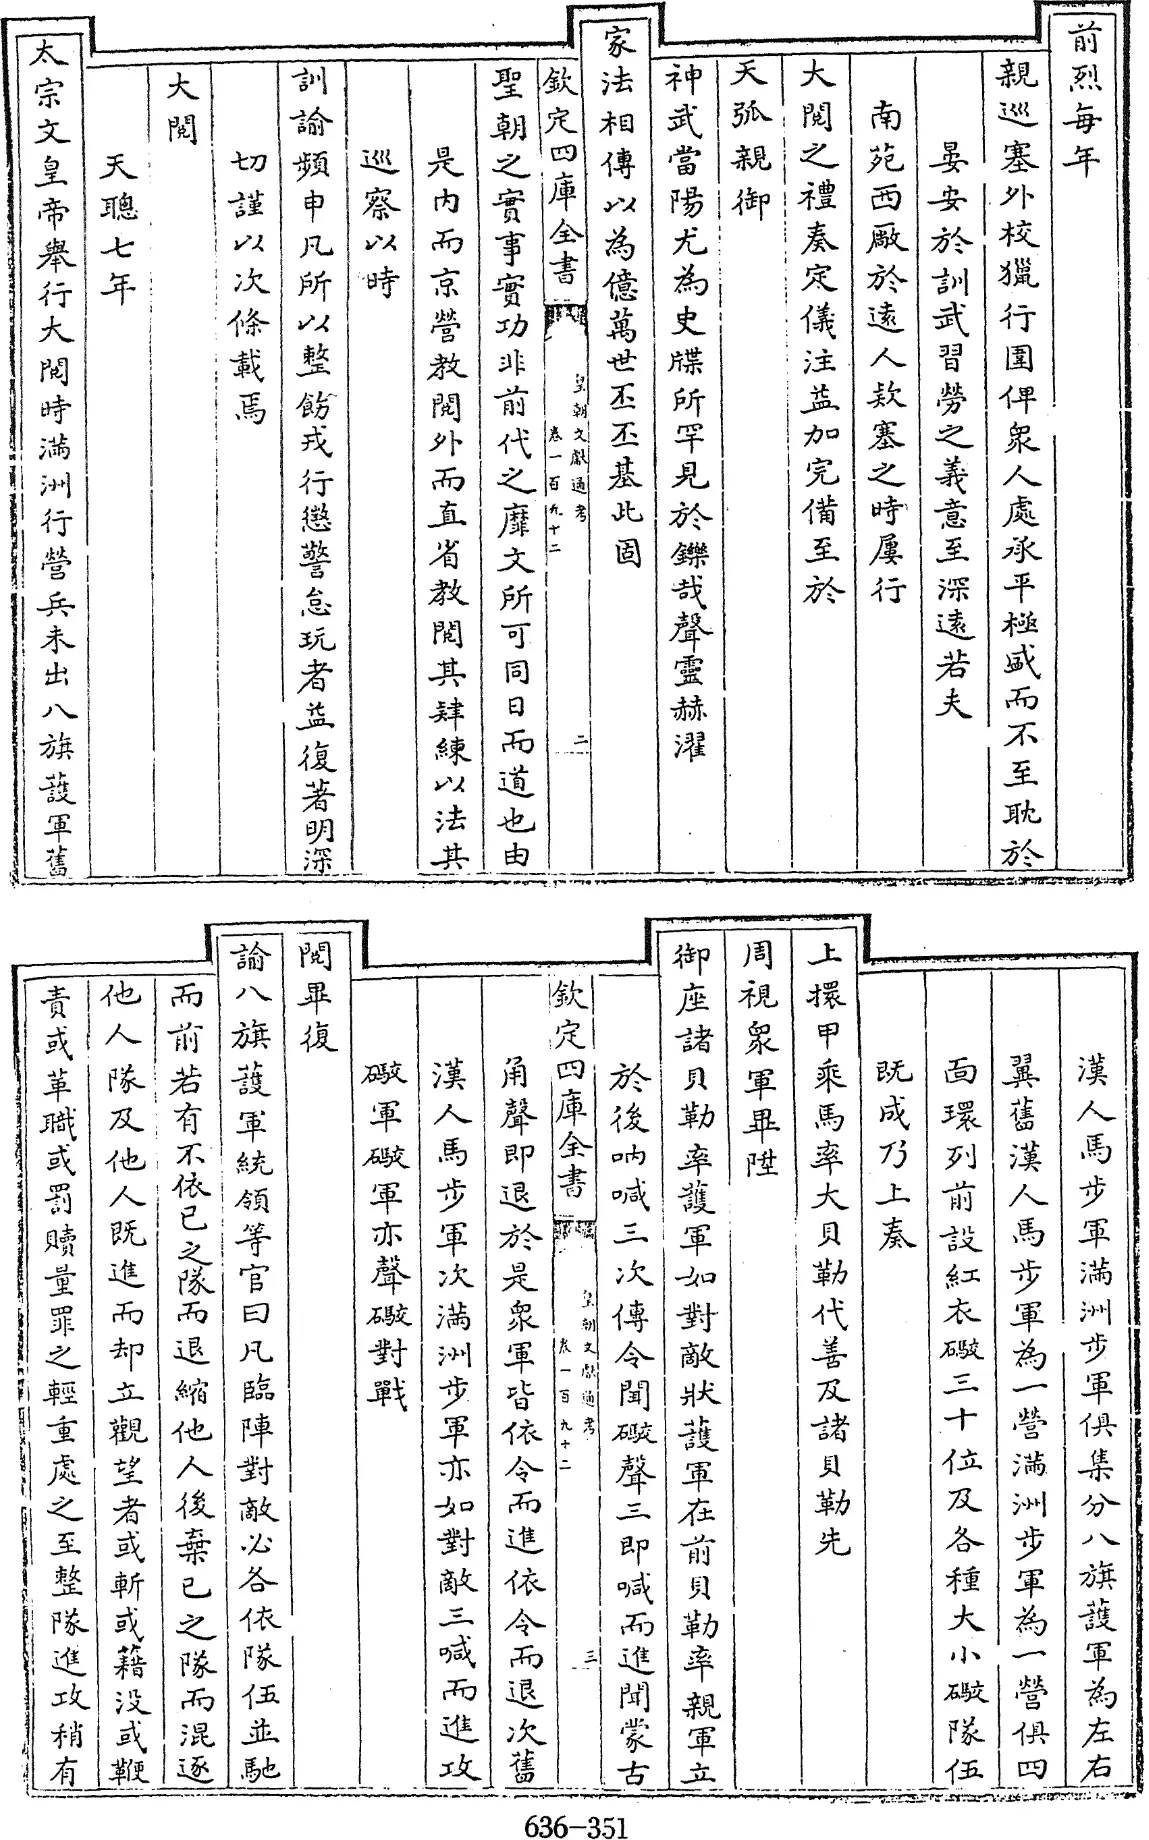 前烈每年
親巡塞外校獵行圍俾衆人處承平極盛而不至耽於
晏安於訓武習勞之義意至深遠若夫
南苑西厰於遠人款塞之時屢行
大閱之禮奏定儀注益加完備至於
天弧親御
神武當陽尤為史牒所罕見於鑠哉聲靈赫濯
家法相傳以為億萬世丕丕基此固
欽定四庫全書
皇朝文獻通考
卷一百九十二
二
聖朝之實事實功非前代之靡文所可同日而道也由
是内而京營教閱外而直省教閱其肄練以法其
巡察以時
訓諭頻申凡所以整飭戎行懲警怠玩者益復著明深
切謹以次條載焉
大閱
天聰七年
太宗文皇帝舉行大閱時滿洲行營兵未出八旗護軍舊
漢人馬步軍滿洲步軍俱集分八旗護軍為左右
翼舊漢人馬步軍為一營滿洲步軍為一營俱四
面環列前設紅衣礮三十位及各種大小礮隊伍
既成乃上奏
上擐甲乘馬率大貝勒代善及諸貝勒先
周視衆軍畢陞
御座諸貝勒率護軍如對敵狀護軍在前貝勒率親軍立
於後吶喊三次傳令聞礮聲三即喊而進聞蒙古
欽定四庫全書
皇朝文獻通考
卷一百九十二
三
角聲即退於是衆軍皆依令而進依令而退次舊
漢人馬步軍次滿洲步軍亦如對敵三喊而進攻
礮軍礮軍亦聲礮對戰
閱畢復
諭八旗護軍統領等官曰凡臨陣對敵必各依隊伍並馳
而前若有不依已之隊而退縮他人後棄已之隊而混逐
他人隊及他人既進而却立觀望者或斬或藉没或鞭
責或革職或罰贖量罪之輕重處之至整隊進攻稍有
636-351